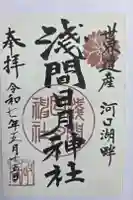 世界遺産 河口湖畔
淺間 神社
奉拝
令和七年五月